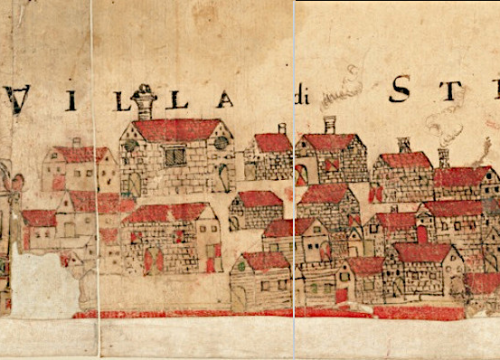 VILLA di STI